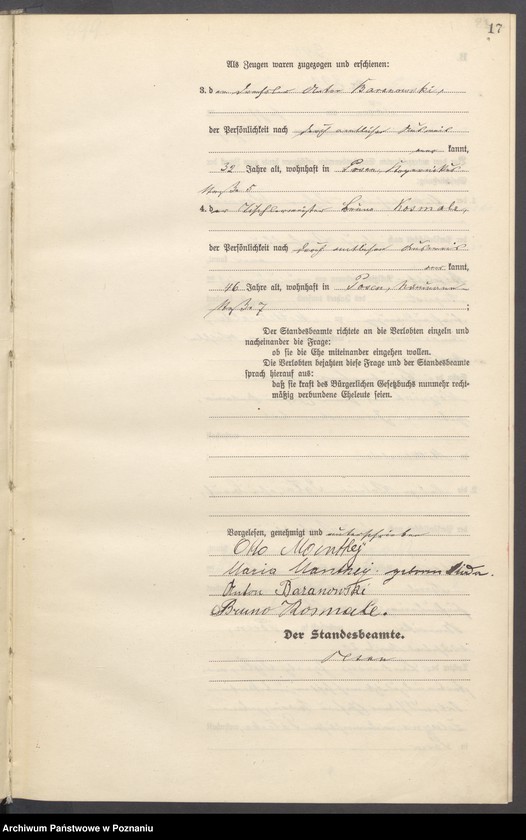 17
Als Zeugen waren zugezogen und erschienen:
3. der Anton Baranowski,
der Persönlichkeit nach durch amtlichen Ausweis
kannt,
32 Jahre alt, wohnhaft in Posen,
straße 5
4. der Tischlermeister Bruno Kosmale,
der Persönlichkeit nach durch amtlichen Ausweis
kannt,
46 Jahre alt, wohnhaft in Posen, Naumann-
straße 7;
Der Standesbeamte richtete an die Verlobten einzeln und
nacheinander die Frage:
ob sie die Ehe miteinander eingehen wollen.
Die Verlobten bejahten diese Frage und der Standesbeamte
sprach hierauf aus:
daß sie kraft des Bürgerlichen Gesetzbuchs nunmehr recht-
mäßig verbundene Eheleute seien.
Vorgelesen, genehmigt und unterschrieben
Otto Manthey
Maria Manthey geborene
Anton Baranowski
Bruno Kosmale.
Der Standesbeamte.
Archiwum Państwowe w Poznaniu